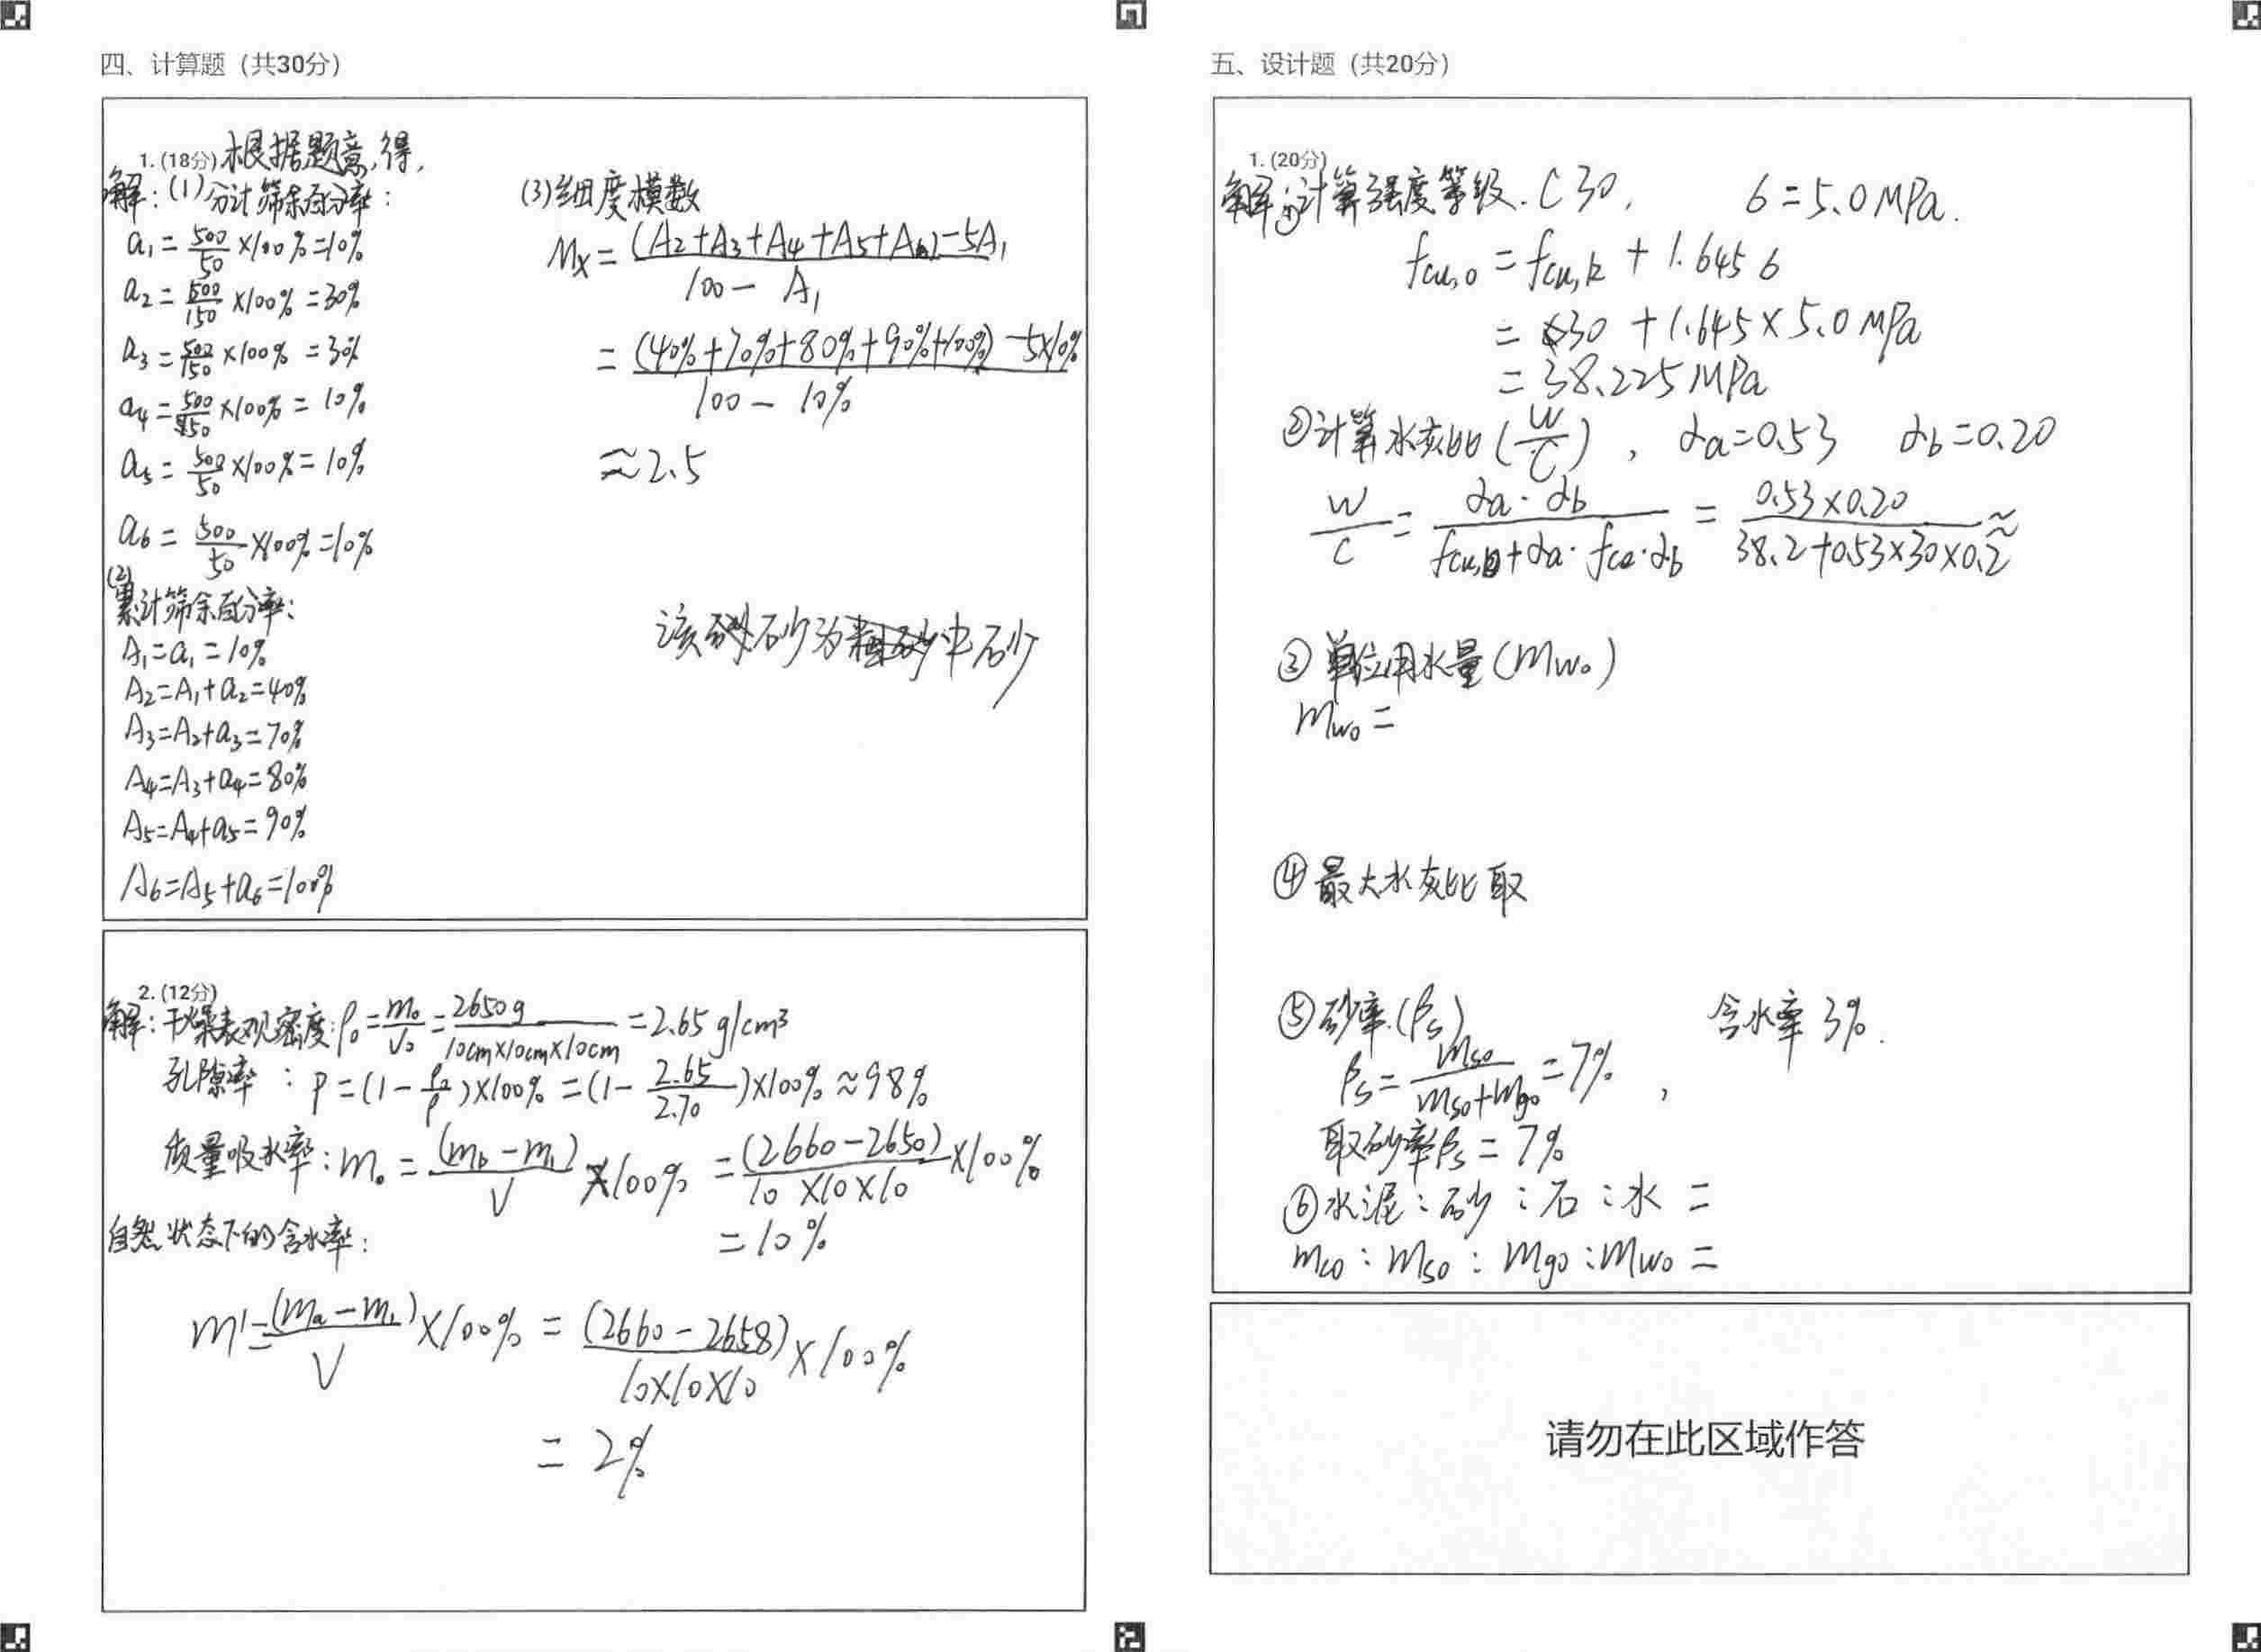 四、计算题（共30分）
1.(18分) 根据题意,得,
解：(1)分计筛余百分率：
a₁=500/50×100%=10%
a₂=500/150×100%=30%
a₃=500/150×100%=30%
a₄=500/50×100%=10%
a₅=500/50×100%=10%
a₆=500/50×100%=10%
(2)
累计筛余百分率：
A₁=a₁=10%
A₂=A₁+a₂=40%
A₃=A₂+a₃=70%
A₄=A₃+a₄=80%
A₅=A₄+a₅=90%
A₆=A₅+a₆=100%
(3)细度模数
Mx=(A₂+A₃+A₄+A₅+A₆)-5A₁/100-A₁
=(40%+70%+80%+90%+100%)-5×10%/100-10%
≈2.5
该砂为中砂
2.(12分)
解：干燥表观密度:ρ₀=m₀/V₀=2650g/10cm×10cm×10cm=2.65g/cm³
孔隙率：P=(1-ρ₀/ρ)×100%=(1-2.65/2.70)×100%≈98%
质量吸水率：m₀=(mb-m₁)/V×100%=(2660-2650)/10×10×10×100%
=10%
自然状态下的含水率：
m'=(ma-m₁)/V×100%=(2660-2658)/10×10×10×100%
=2%
五、设计题（共20分）
1.(20分)
解：①计算强度等级.C30, б=5.0MPa.
fcu,o=fcu,k+1.645б
=30+1.645×5.0MPa
=38.225MPa
②计算水灰比(W/C), αa=0.53 αb=0.20
W/C=αa·αb/fcu,o+αa·fce·αb=0.53×0.20/38.2+0.53×30×0.2≈
③单位用水量(mwo)
mwo=
④最大水灰比取
⑤砂率.(βs) 含水率3%.
βs=mso/mso+mgo=7%,
取砂率βs=7%
⑥水泥：砂：石：水=
mco：mso：mgo：mwo=
请勿在此区域作答